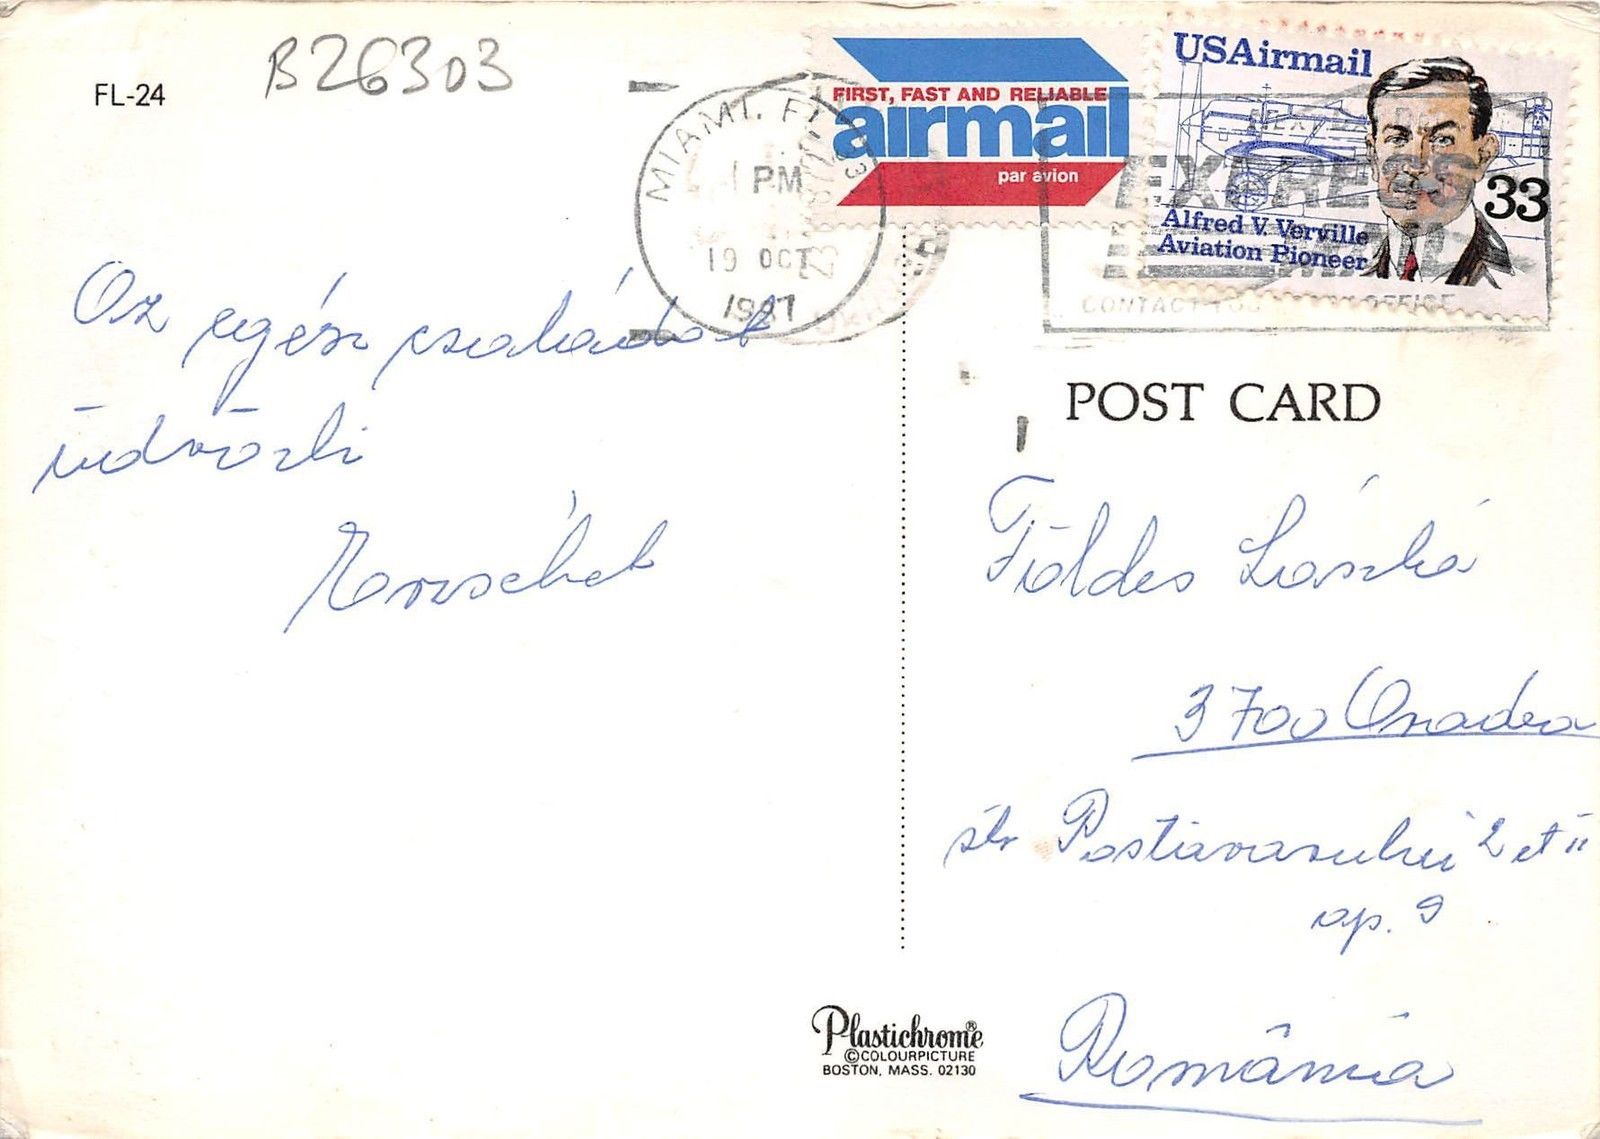 FL-24
B26303
MIAMI, FL
PM
19 OCT
1987
FIRST, FAST AND RELIABLE
airmail
par avion
USAirmail
33
Alfred V. Verville
Aviation Pioneer
EXPRESS
CONTACT POST OFFICE
Az egész családot
üdvözli
Erzsébet
POST CARD
Földes László
3700 Oradea
str Postavarului 2 et II
ap. 9
România
Plastichrome®
©COLOURPICTURE
BOSTON, MASS. 02130